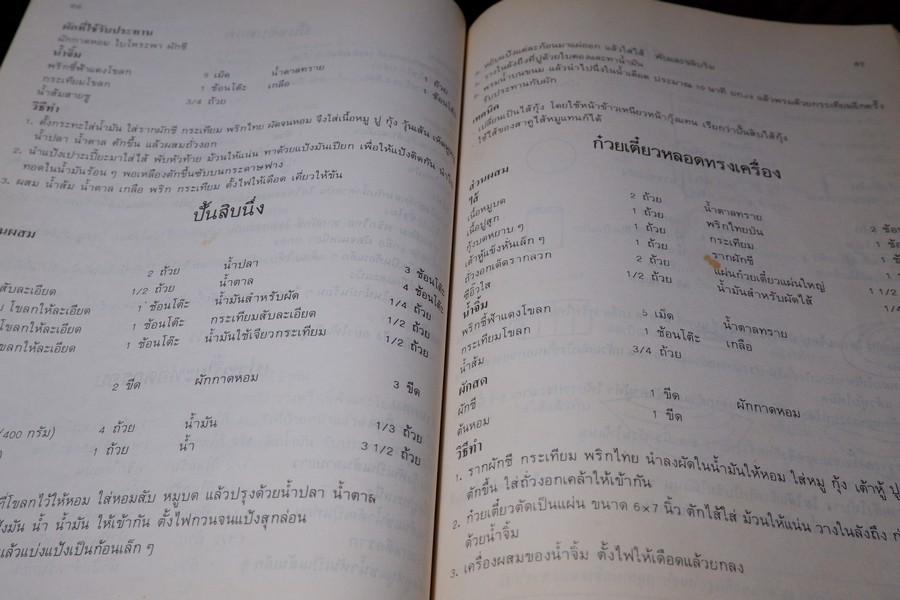 ๕๖
ผักที่ใช้รับประทาน
ผักกาดหอม ใบโหระพา ผักชี
น้ำจิ้ม
พริกชี้ฟ้าแดงโขลก 5 เม็ด น้ำตาลทราย 1 ถ้วย
กระเทียมโขลก 1 ช้อนโต๊ะ เกลือ 1 ช้อนโต๊ะ
น้ำส้มสายชู 3/4 ถ้วย
วิธีทำ
1. ตั้งกระทะใส่น้ำมัน ใส่รากผักชี กระเทียม พริกไทย ผัดจนหอม จึงใส่เนื้อหมู ปู กุ้ง วุ้นเส้น
น้ำปลา น้ำตาล ตักขึ้น แล้วผสมถั่วงอก
2. นำแป้งเปาะเปี๊ยะมาใส่ไส้ พับหัวท้าย ม้วนให้แน่น ทาด้วยแป้งมันเปียก เพื่อให้แป้งติดกัน
ทอดในน้ำมันร้อน ๆ พอเหลืองตักขึ้นซับบนกระดาษฟาง
3. ผสม น้ำส้ม น้ำตาล เกลือ พริก กระเทียม ตั้งไฟให้เดือด เคี่ยวให้ข้น
ปั้นสิบนึ่ง
นผสม
2 ถ้วย น้ำปลา 3 ช้อนโต๊ะ
สับละเอียด 1/2 ถ้วย น้ำตาล 4 ช้อนโต๊ะ
โขลกให้ละเอียด 1 ช้อนโต๊ะ น้ำมันสำหรับผัด 1/4 ถ้วย
โขลกให้ละเอียด 1 ช้อนโต๊ะ กระเทียมสับละเอียด 1/2 ถ้วย
ขลกให้ละเอียด 1 ช้อนโต๊ะ น้ำมันใช้เจียวกระเทียม 1/2 ถ้วย
2 ขีด ผักกาดหอม 3 ขีด
(400 กรัม) 4 ถ้วย น้ำมัน 1/3 ถ้วย
1 ถ้วย น้ำ 3 1/2 ถ้วย
ที่โขลกไว้ให้หอม ใส่หอมสับ หมูบด แล้วปรุงด้วยน้ำปลา น้ำตาล
งมัน น้ำ น้ำมัน ให้เข้ากัน ตั้งไฟกวนจนแป้งสุกล่อน
แล้วแบ่งแป้งเป็นก้อนเล็ก ๆ
หยิบแป้งแต่ละก้อนมาแผ่ออก แล้วใส่ไส้ พับและขลิบริม
วางในลังถึงที่ปูด้วยใบตองและทาน้ำมัน
พรมน้ำบนขนม แล้วนำไปนึ่งในน้ำเดือด ประมาณ 10 นาที ยกลง แล้วพรมด้วยกระเทียมเจียวอีกครั้ง
รับประทานกับผัก
เทคนิค
เปลี่ยนเป็นไส้กุ้ง โดยใช้หน้าข้าวเหนียวหน้ากุ้งแทน เรียกว่าปั้นสิบไส้กุ้ง
ใช้ไส้ของสาคูไส้หมูแทนก็ได้
ก๋วยเตี๋ยวหลอดทรงเครื่อง
ส่วนผสม
ไส้
เนื้อหมูบด 2 ถ้วย น้ำตาลทราย
เนื้อปูสุก 1 ถ้วย พริกไทยป่น
กุ้งบดหยาบ ๆ 1 ถ้วย กระเทียม
เต้าหู้แข็งหั่นเล็ก ๆ 1 ถ้วย รากผักชี
ถั่วงอกเด็ดรากลวก 2 ถ้วย แผ่นก๋วยเตี๋ยวแผ่นใหญ่ 1 1/2
ซีอิ๊วใส 1/2 ถ้วย น้ำมันสำหรับผัดไส้ 1/4
น้ำจิ้ม
พริกชี้ฟ้าแดงโขลก 5 เม็ด น้ำตาลทราย
กระเทียมโขลก 1 ช้อนโต๊ะ เกลือ
น้ำส้ม 3/4 ถ้วย
ผักสด
ผักชี 1 ขีด ผักกาดหอม
ต้นหอม 1 ขีด
วิธีทำ
1. รากผักชี กระเทียม พริกไทย นำลงผัดในน้ำมันให้หอม ใส่หมู กุ้ง เต้าหู้ ปู
ตักขึ้น ใส่ถั่วงอกเคล้าให้เข้ากัน
2. ก๋วยเตี๋ยวตัดเป็นแผ่น ขนาด 6 × 7 นิ้ว ตักไส้ใส่ ม้วนให้แน่น วางในลังถึง
ด้วยน้ำจิ้ม
3. เครื่องผสมของน้ำจิ้ม ตั้งไฟให้เดือดแล้วยกลง